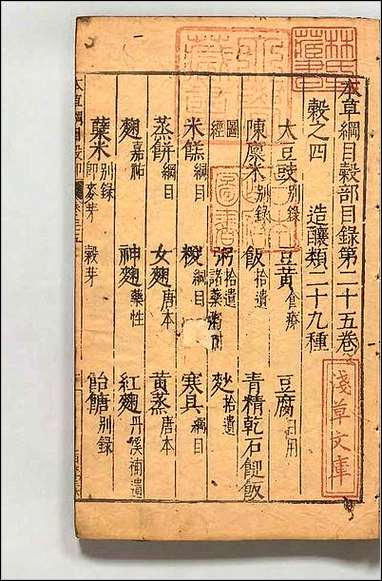 本草綱目穀部目錄第二十五卷
穀之四 造釀類二十九種
大豆豉別錄 豆黃食療 豆腐日用
陳廩米別錄 飯拾遺 青精乾石䭀飯
圖經 粥拾遺諸藥粥附 麨拾遺
米糕綱目 糉綱目 寒具綱目
蒸餅綱目 女麴唐本 黃蒸唐本
麴嘉祐 神麴藥性 紅麴丹溪補遺
蘗米別錄即麥芽穀芽 飴餹別錄
淺草文庫